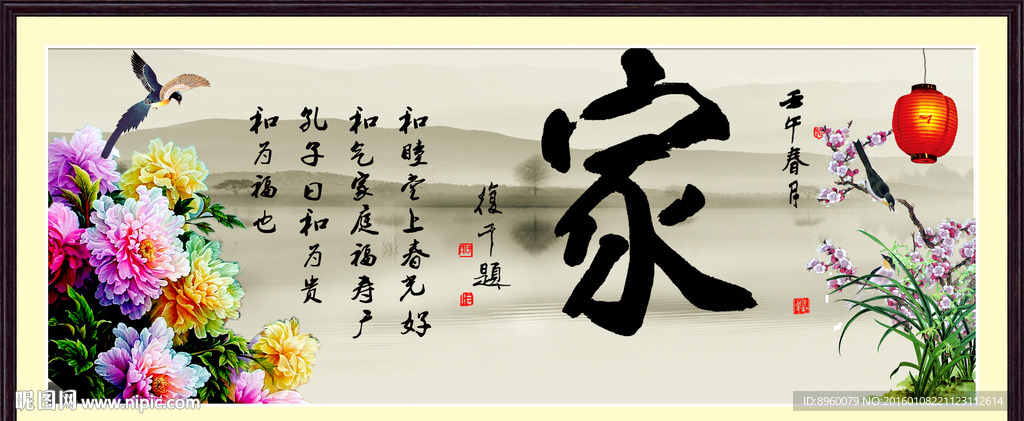 壬午春月
家
復平題
和睦堂上春光好
和气家庭福寿广
孔子曰和为贵
和为福也
昵图网 www.nipic.com
ID:8960079 NO:20160108221123112614